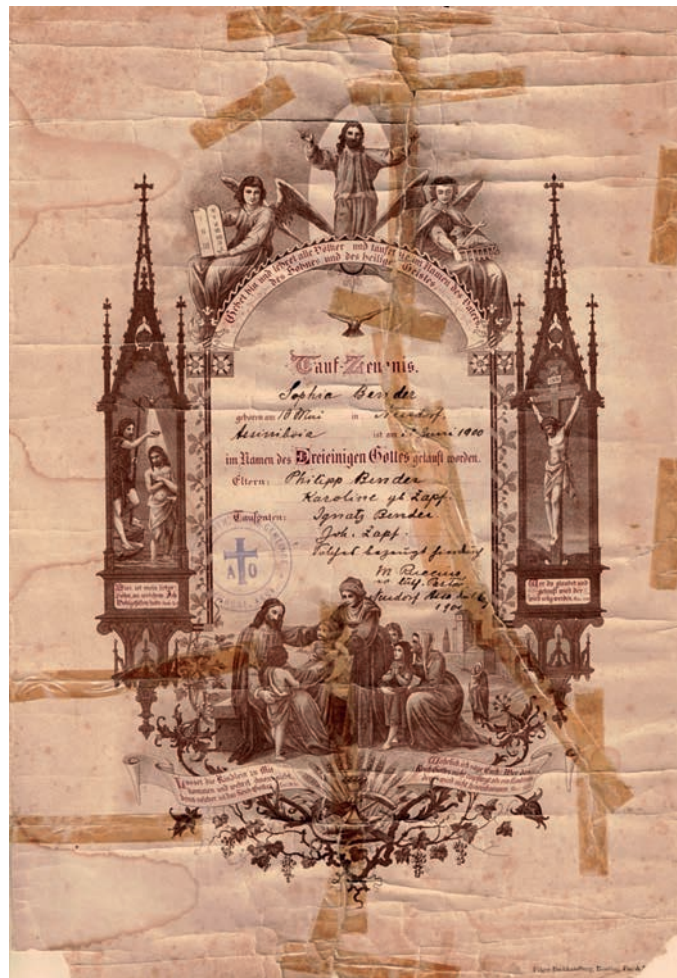 Gehet hin und lehret alle Völker und taufet sie im Namen des Vaters
des Sohnes und des heilige Geistes
Tauf-Zeugnis.
Sophia Bender
geboren am 18 Mai in Neudorf
Assiniboia ist am Juni 1900
im Namen des Dreieinigen Gottes getauft worden.
Eltern: Philipp Bender
Karoline gb Zapf.
Taufpaten: Ignatz Bender.
Joh. Zapf.
Solches bezeugt
A O
M.
Luth. Pastor
Neudorf
1900
INRI
Dies ist mein lieber
Sohn, an welchem Ich
Wohlgefallen habe
Wer da glaubet und
getauft wird der
wird selig werden.
Lasset die Kindlein zu Mir
kommen und wehret ihnen nicht,
denn solcher ist das Reich Gottes
Wahrlich ich sage Euch: Wer das
Reich Gottes nicht empfängt als ein
Pilger-Buchhandlung, Reading,